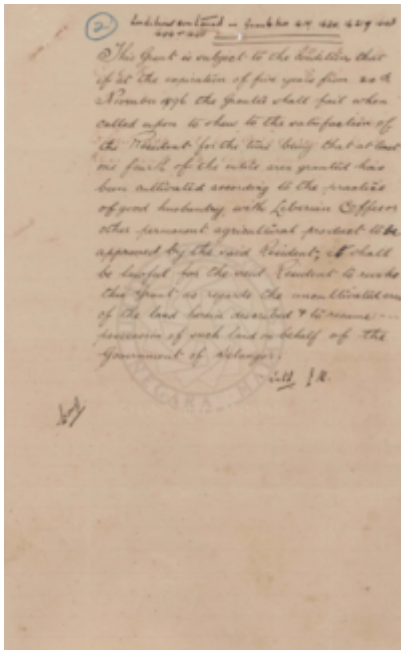 2
This Grant is subject to the Condition that
if at the expiration of five years from 20th
November 1896 the Grantee shall fail when
called upon to show to the satisfaction of
the Resident for the time being that at least
one fourth of the entire area granted has
been cultivated according to the practice
of good husbandry with Liberian Coffee or
other permanent agricultural product to be
approved by the said Resident, it shall
be lawful for the said Resident to revoke
this Grant as regards the uncultivated area
of the land herein described & to resume
possession of such land on behalf of the
Government of Selangor.
NEGARA